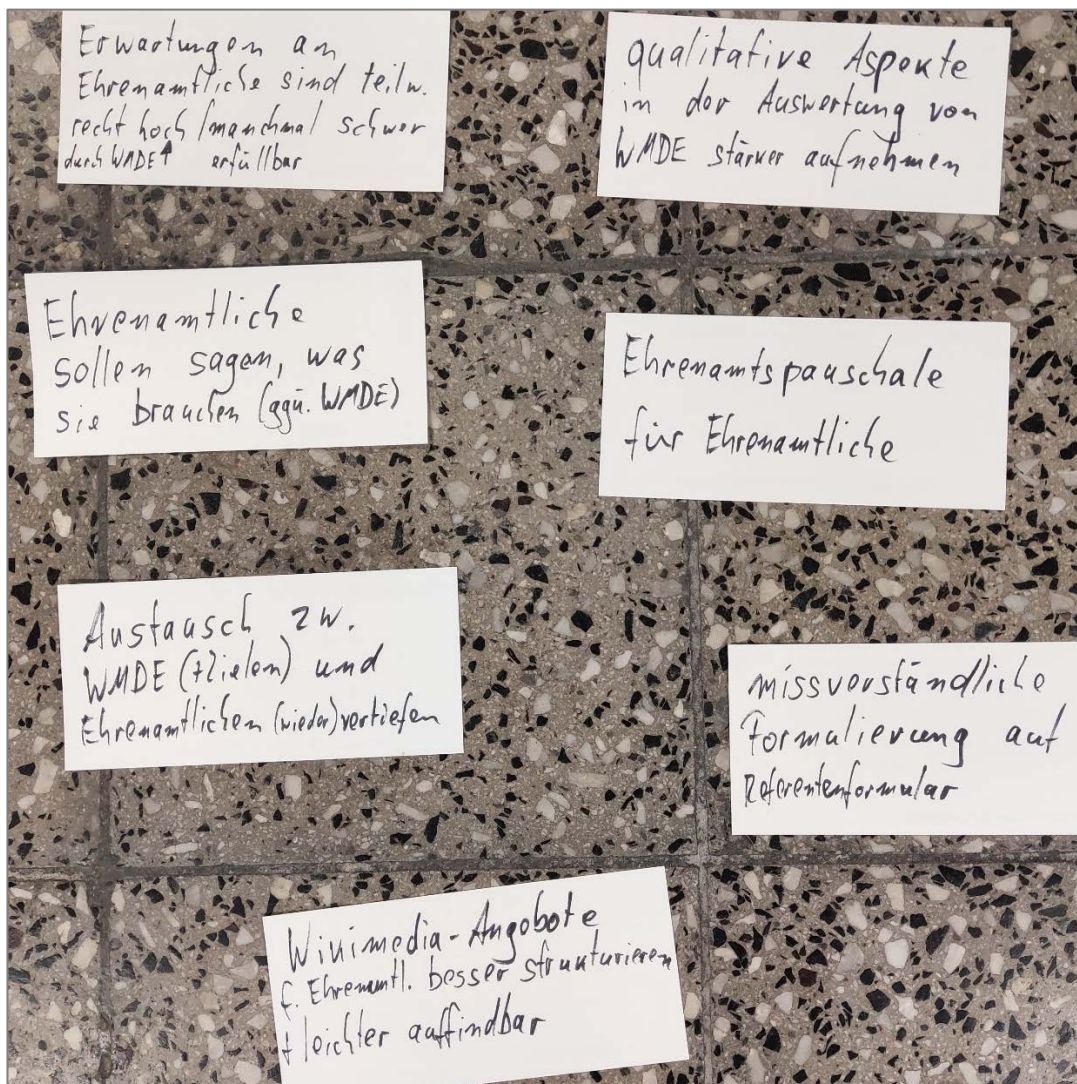 Erwartungen an
Ehrenamtliche sind teilw.
recht hoch/manchmal schwer
durch WMDE↑ erfüllbar
qualitative Aspekte
in der Auswertung von
WMDE stärker aufnehmen
Ehrenamtliche
sollen sagen, was
sie brauchen (ggü. WMDE)
Ehrenamtspauschale
für Ehrenamtliche
Austausch zw.
WMDE (+Zielen) und
Ehrenamtlichen (wieder) vertiefen
missverständliche
Formulierung auf
Referentenformular
Wikimedia-Angebote
f. Ehrenamtl. besser strukturieren
+ leichter auffindbar